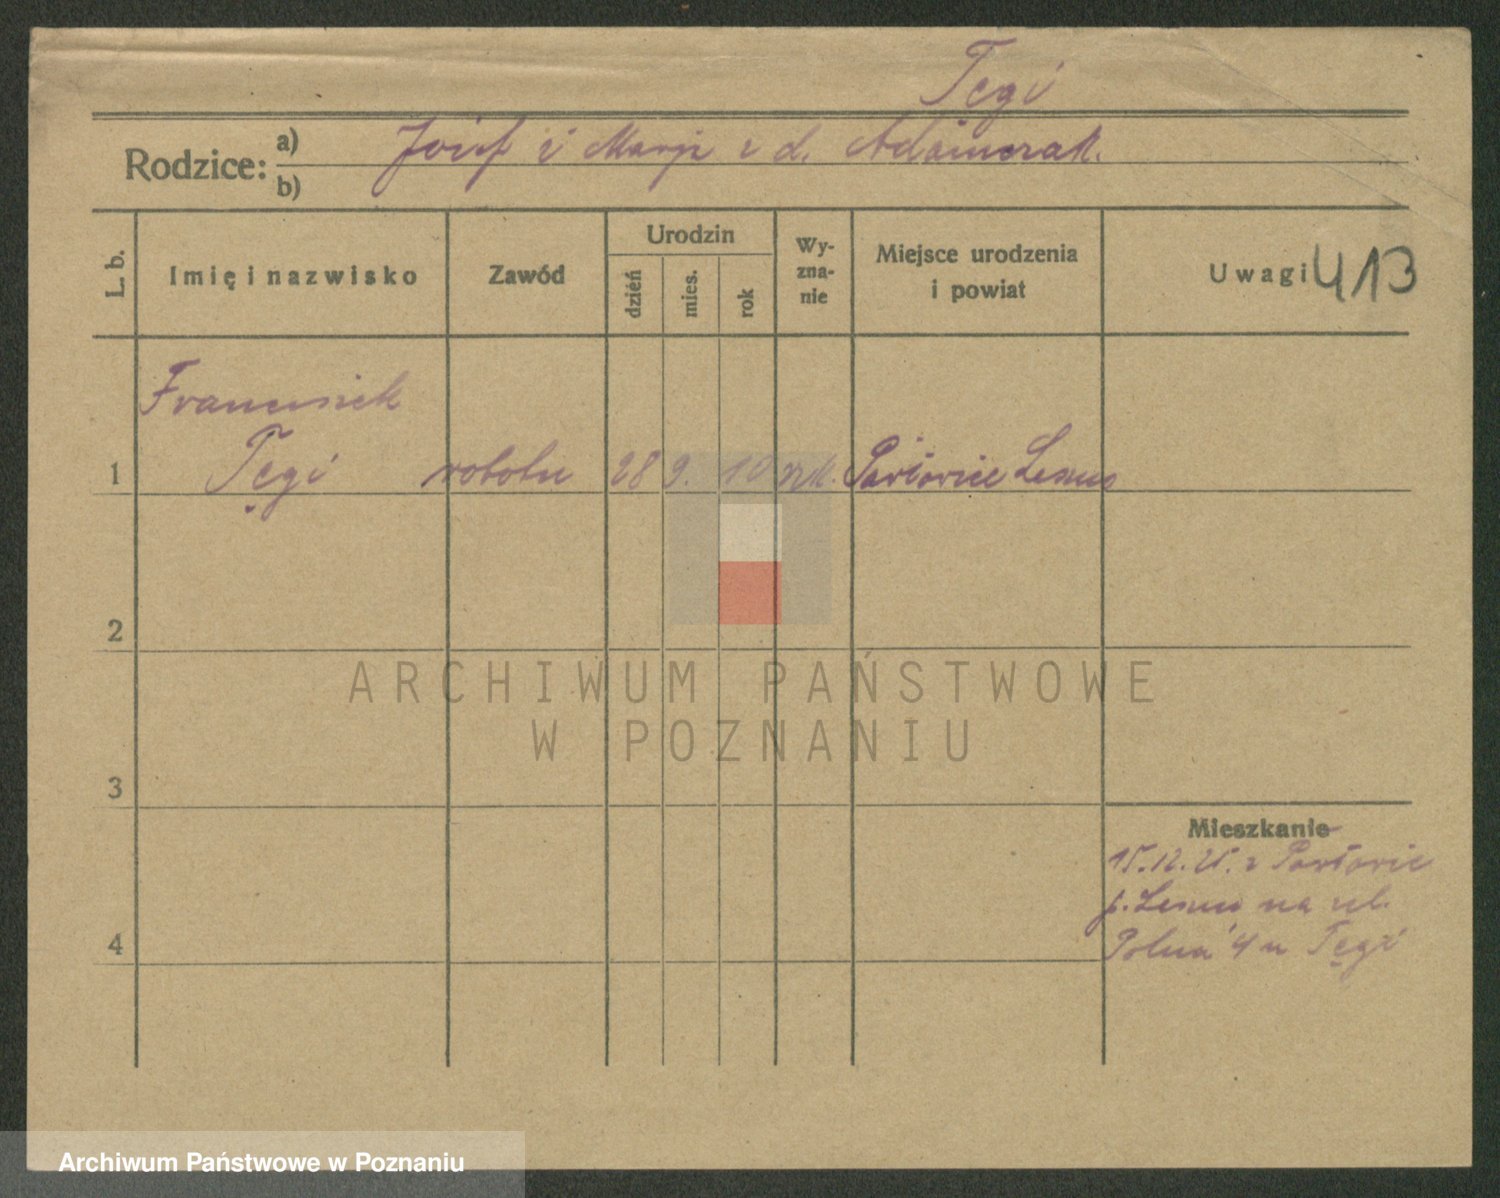 Tęgi
Rodzice: a) Józef i Marja z d. Adamczak.
b)
L. b.
Imię i nazwisko
Zawód
Urodzin
dzień
mies.
rok
Wy-
zna-
nie
Miejsce urodzenia
i powiat
Uwagi 413
Franciszek
1 Tęgi robotn 28 9. 10 rzk. Pawłowice Leszno
2
3
4
ARCHIWUM PAŃSTWOWE
W POZNANIU
Mieszkanie
15.12.25. z Pawłowic
p. Leszno na ul.
Polna 4 u Tęgi
Archiwum Państwowe w Poznaniu